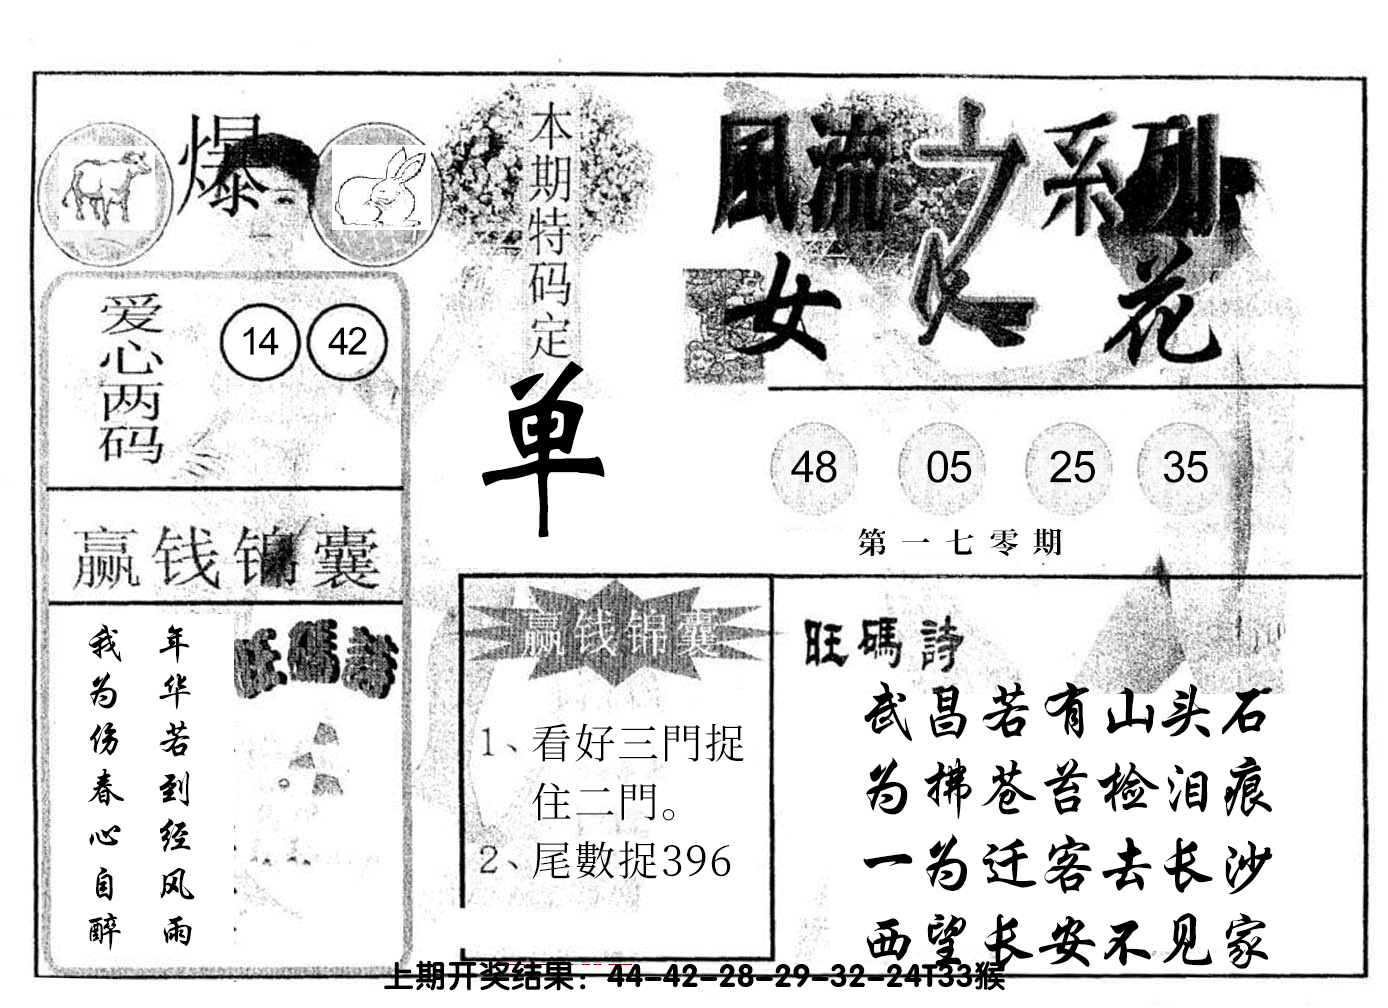 爆
本期特码定
单
風流之系列
女人花
爱心两码
14 42
48 05 25 35
第一七零期
赢钱锦囊
年华若到经风雨
我为伤春心自醉
旺碼詩
赢钱锦囊
1、看好三門捉
住二門。
2、尾數捉396
旺碼詩
武昌若有山头石
为拂苍苔检泪痕
一为迁客去长沙
西望长安不见家
上期开奖结果：44-42-28-29-32-24T33猴